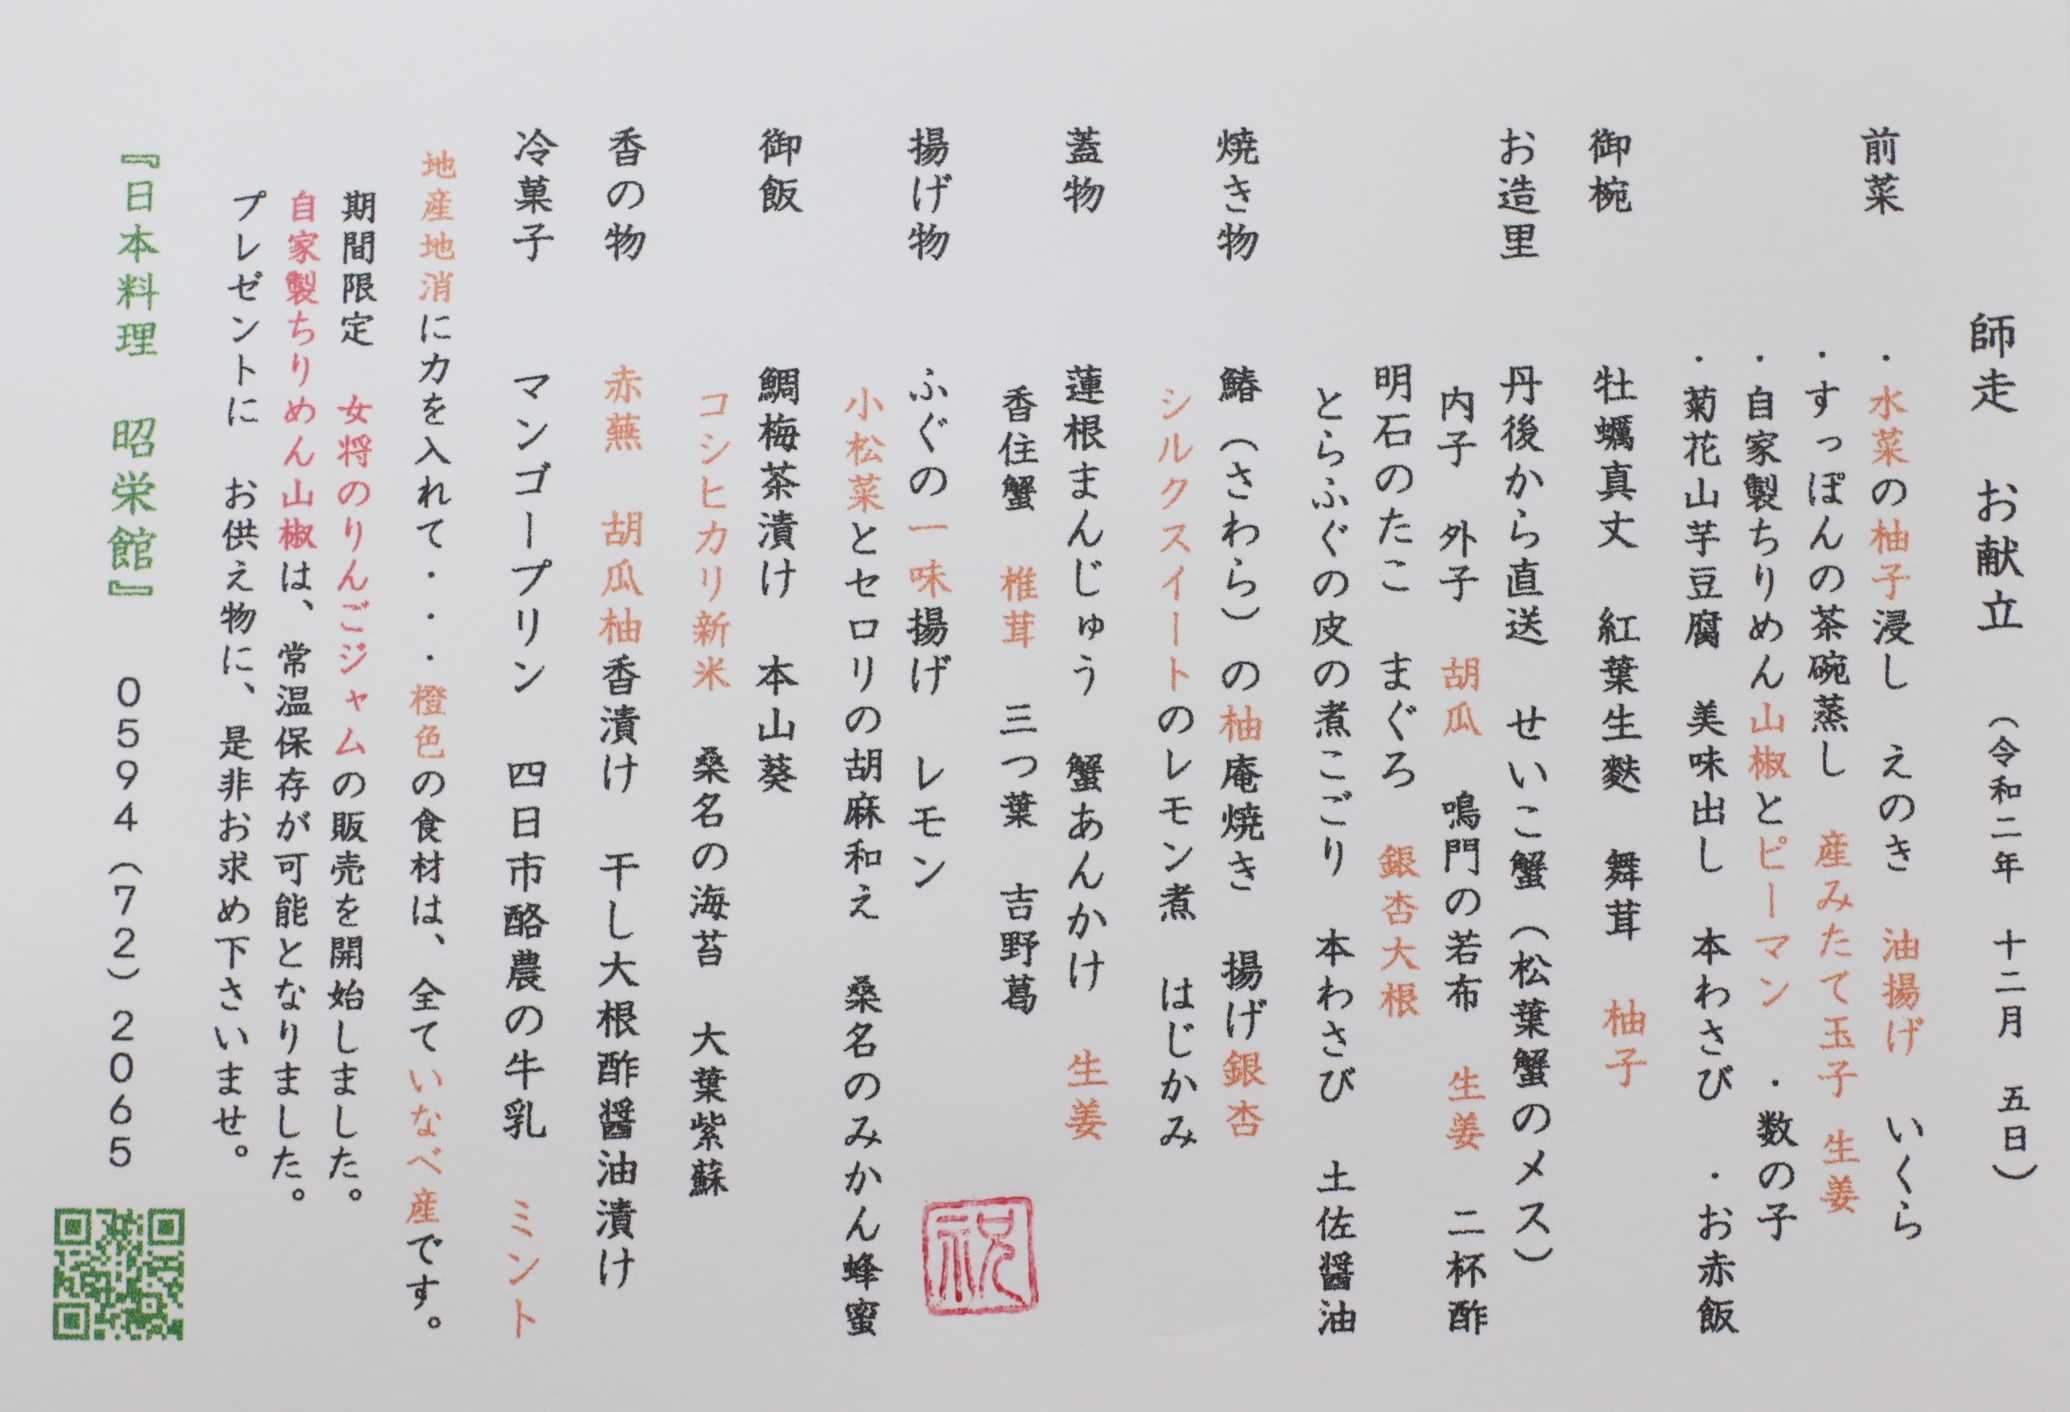 師走　お献立　（令和二年　十二月　五日）
前菜　・水菜の柚子浸し　えのき　油揚げ　いくら
・すっぽんの茶碗蒸し　産みたて玉子　生姜
・自家製ちりめん山椒とピーマン　・数の子
・菊花山芋豆腐　美味出し　本わさび　・お赤飯
御椀　牡蠣真丈　紅葉生麩　舞茸　柚子
お造里　丹後から直送　せいこ蟹（松葉蟹のメス）
内子　外子　胡瓜　鳴門の若布　生姜　二杯酢
明石のたこ　まぐろ　銀杏大根
とらふぐの皮の煮こごり　本わさび　土佐醤油
焼き物　鰆（さわら）の柚庵焼き　揚げ銀杏
シルクスイートのレモン煮　はじかみ
蓋物　蓮根まんじゅう　蟹あんかけ　生姜
香住蟹　椎茸　三つ葉　吉野葛
揚げ物　ふぐの一味揚げ　レモン
小松菜とセロリの胡麻和え　桑名のみかん蜂蜜
御飯　鯛梅茶漬け　本山葵
コシヒカリ新米　桑名の海苔　大葉紫蘇
香の物　赤蕪　胡瓜柚香漬け　干し大根酢醤油漬け
冷菓子　マンゴープリン　四日市酪農の牛乳　ミント
地産地消に力を入れて・・・橙色の食材は、全ていなべ産です。
期間限定　女将のりんごジャムの販売を開始しました。
自家製ちりめん山椒は、常温保存が可能となりました。
プレゼントに　お供え物に、是非お求め下さいませ。
『日本料理　昭栄館』　0594（72）2065
祝